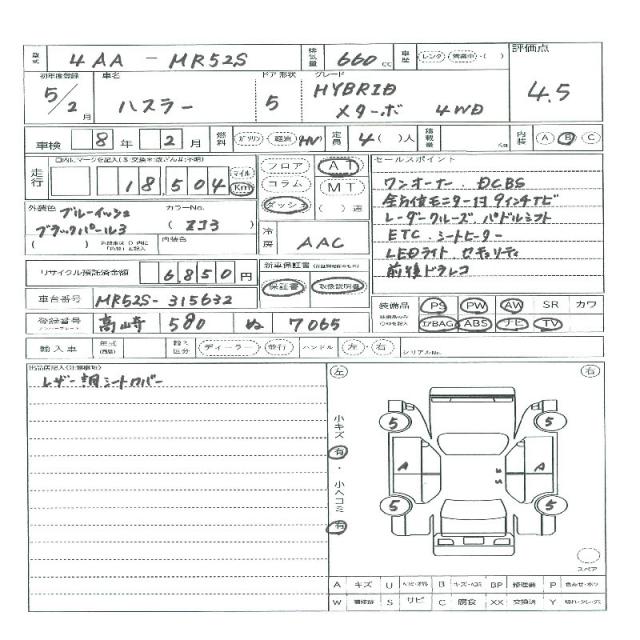 型式 4AA - MR52S 排気量 660 cc 車歴 レンタ・( )
評価点 4.5
初年度登録 車名 ドア 形状 グレード
5/2月 ハスラー 5 HYBRID メターボ 4WD
車検 8年 2月 燃料 ガソリン・軽油 HV 定員 4( )人 積載量 Kg 内装 A B C
走行 18,504 マイル Km
フロア コラム ダッシュ AT MT ( )速
セールスポイント
ワンオーナー DCBS
全方位モニター付9インチナビ
レーダークルーズ パドルシフト
ETC シートヒーター
LEDライト セキュリティ
前後ドラレコ
外装色 ブルーイッシュ ブラックパール3 カラーNo. (ZJ3)
( ) 内装色
冷房 AAC
リサイクル預託済金額 6,850円
新車保証書
保証書 取扱説明書
車台番号 MR52S-315632
装備品 PS PW AW SR カワ
エアBAG ABS ナビ TV
登録番号 高崎 580 ぬ 7065
輸入車 年式 輸入区分 ディーラー・並行 ハンドル 左・右 シリアルNo.
レザー調シートカバー
左 右
小キズ 有・小ヘコミ 有
5 5
A A
5 5
スペア
A キズ U B BP P
W S サビ C 腐食 XX 交換済 Y